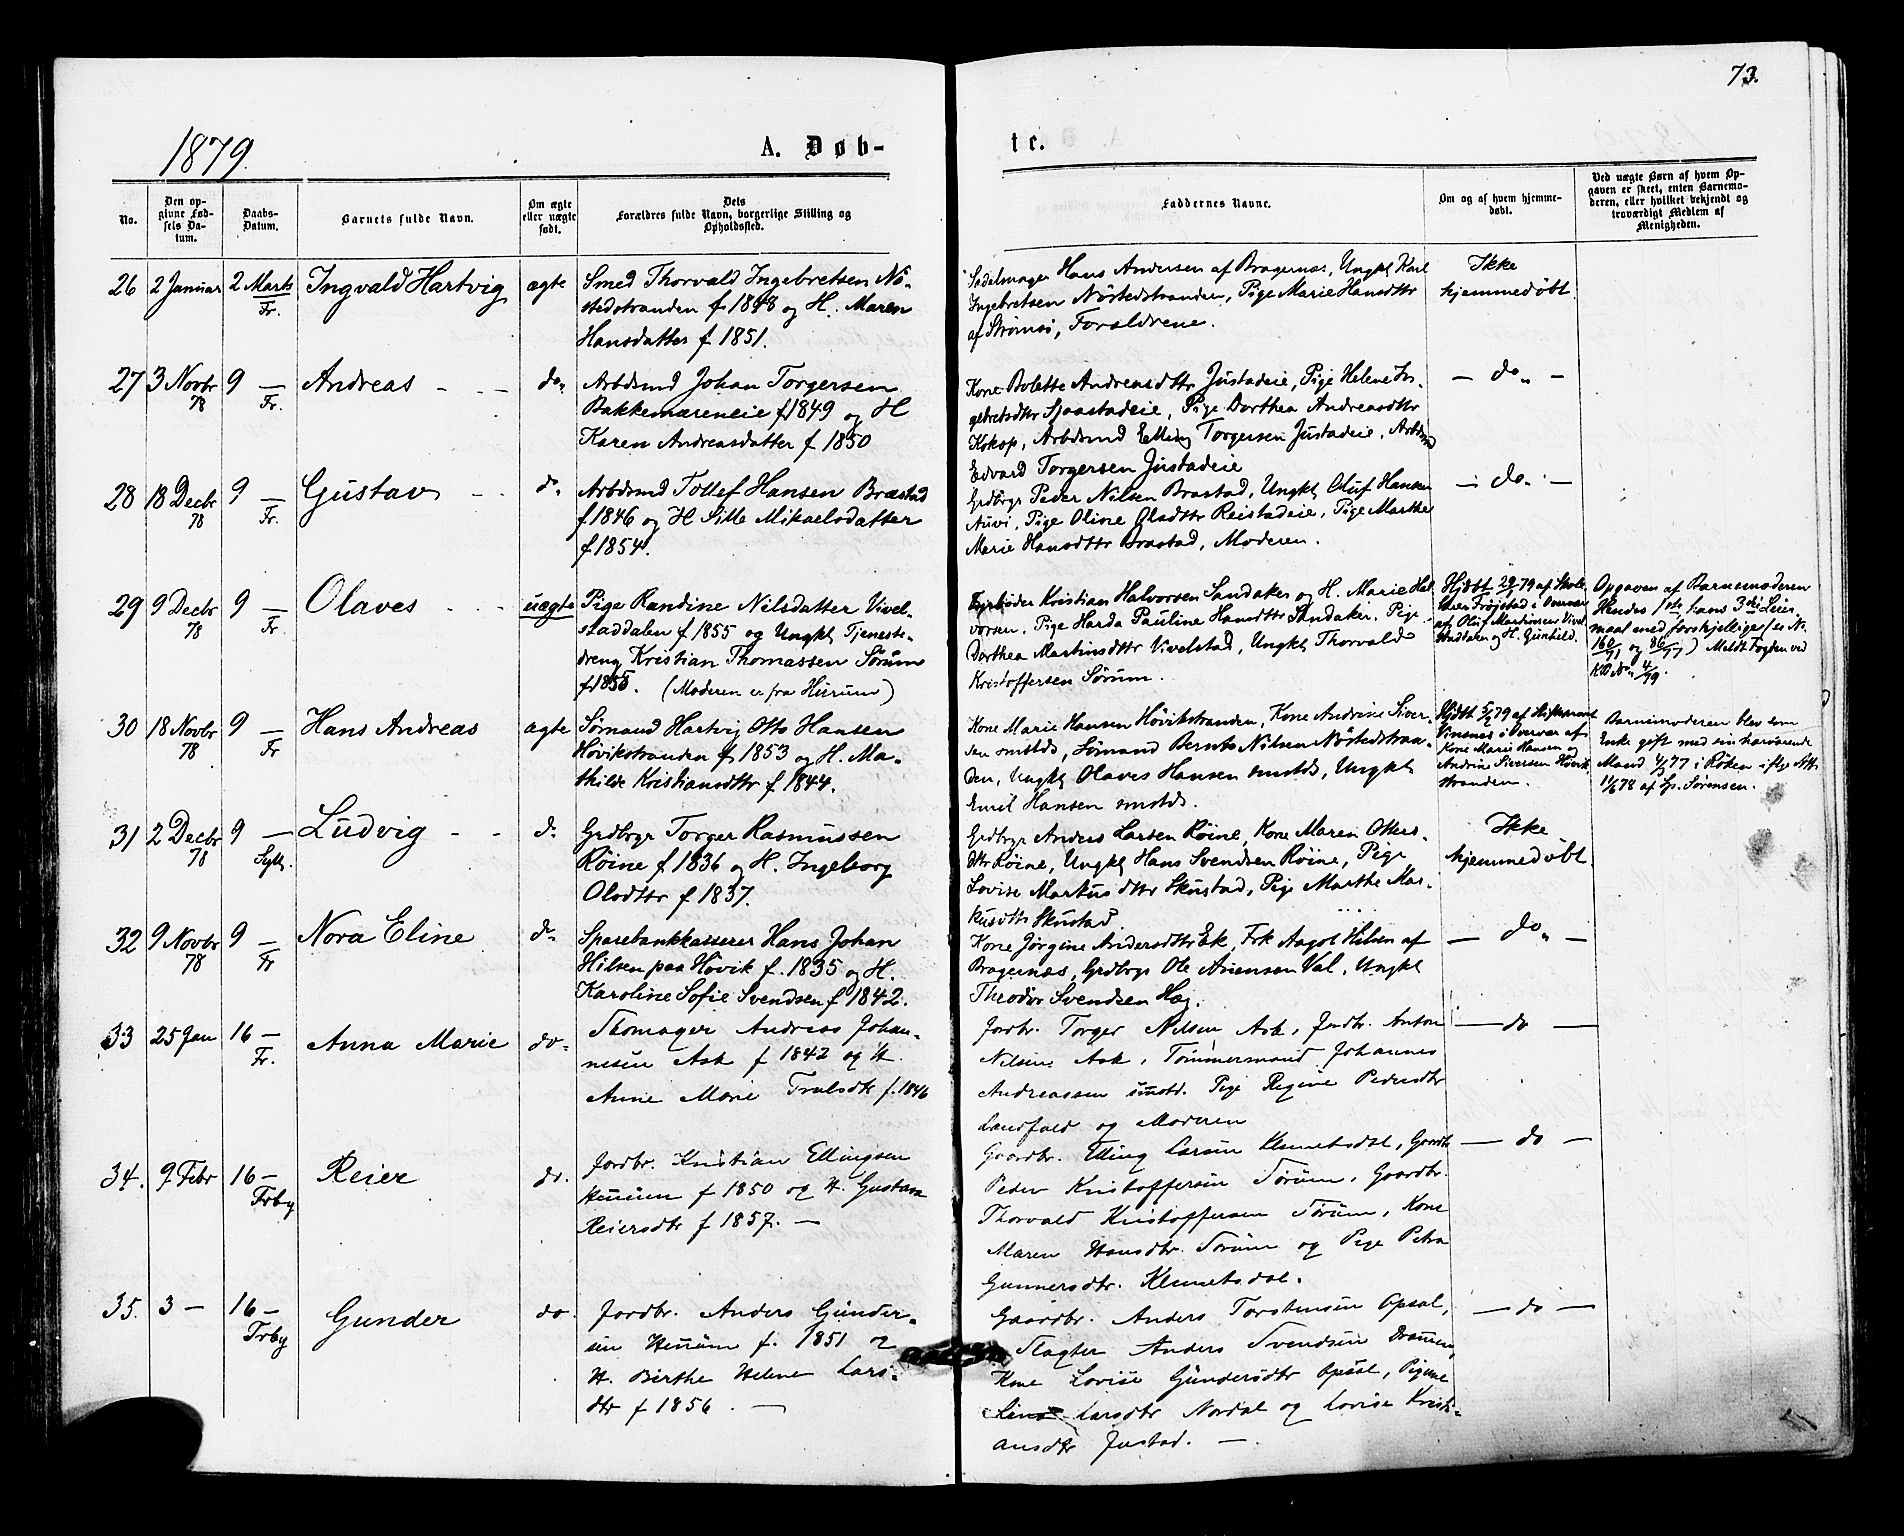 73.
1879.
A. Døb-
te.
No.
Den op-
givne Fød-
sels Da-
tum.
Daabs-
Datum.
Barnets fulde Navn.
Om ægte
eller uægte
født.
Dets
Forældres fulde Navn, borgerlige Stilling og
Opholdssted.
Faddernes Navne.
Om og af hvem hjemme-
døbt.
Ved uægte Børn af hvem Op-
gaven er skeet, enten Barnemo-
deren, eller hvilket bekjendt og
troværdigt Medlem af
Menigheden.
26 2 Januar 2 Marts Fr. Ingvald Hartvig ægte
Smed Thorvald Ingebretsen Nö-
stedstranden f 1848 og H. Maren
Hansdatter f 1851.
Sadelmager Hans Andersen af Bragernæs, Ungkl Karl
Ingebretsen Nöstedstranden, Pige Marie Hansdttr
af Strömsö, Forældrene.
Ikke
hjemmedøbt
27 3 Novbr 78 9 — Fr. Andreas - - - do
Arbdsmd Johan Torgersen
Bakkemæreneie f 1849 og H
Karen Andreasdatter f 1850
Kone Bolette Andreasdttr Justadeie, Pige Helene In-
gebretsdttr Sjaastadeie, Pige Dorthea Andreasdttr
Kokop, Arbdsmd Elling Torgersen Justadeie, Arbdsmd
Edvard Torgersen Justadeie
— do —
28 18 Decbr 78 9 — Fr. Gustav - - do
Arbdsmd Tollef Hansen Bræstad
f 1846 og H Sille Mikaelsdatter
f 1854.
Grdbrgr Peder Nilsen Brastad, Ungkl Oluf Hansen
Auvi, Pige Oline Olsdttr Reistadeie, Pige Marthe
Marie Hansdttr Brastad, Moderen.
— do —
29 9 Decbr 78 9 — Fr. Olaves - - uægte
Pige Randine Nilsdatter Vivel-
staddalen f 1855 og Ungkl Tjeneste-
dreng Kristian Thomassen Sørum
f 1855. (Moderen er fra Hurum)
Kristian Halvorsen Sandaker og H. Marie Hal-
vorsen, Pige Harda Pauline Hansdttr Sandaker, Pige
Dorthea Martinsdttr Vivelstad, Ungkl Thorvald
Kristoffersen Sørum.
Hjdbt 29/1 79 af Skole-
lærer Frøjstad i Overvær
af Oluf Martinsen Vivel-
stadtern og H. Gunhild.
Opgaven af Barnemoderen
Hendes 1ste, hans 3die Leier-
maal med forskjellige (se N.
160/71 og 86/77) Meldt Fogden ved
30 18 Novbr 78 9 — Fr Hans Andreas ægte
Sømand Hartvig Otto Hansen
Hövikstranden f 1853 og H. Ma-
thilde Kristiansdttr f 1844.
Kone Marie Hansen Hövikstranden, Kone Andrine Siver-
sen smstds, Sømand Bernt Nilsen Nöstedstran-
den, Ungkl Olaves Hansen smstds, Ungkl
Emil Hansen smstds.
Hjdbt 5/2 79 af
Vinsnes i Overvær af
Kone Marie Hansen og
Andrine Siversen Hövik-
stranden.
Barnemoderen blev som
Enke gift med sin havørende
Mand 4/3 77 i Röken iflge Att.
11/6 78 af Sp. Sörensen.
31 2 Decbr 78 9 — Syll. Ludvig - - do
Grdbrgr Torger Rasmussen
Röine f 1836 og H. Ingeborg
Olsdttr f 1837.
Grdbrgr Anders Larsen Röine, Kone Maren Otters-
dttr Röine, Ungkl Hans Svendsen Röine, Pige
Lovise Markusdttr Skustad, Pige Marthe Mar-
kusdttr Skustad
Ikke
hjemmedøbt
32 9 Novbr 78 9 — Fr Nora Eline do
Sparebankkasserer Hans Johan
Hilsen paa Hövik f. 1835 og H.
Karoline Sofie Svendsen f 1842.
Kone Jørgine Andersdttr Ek, Frk Aagot Hilsen af
Bragernæs, Grdbrgr Ole Ariensen Val, Ungkl
Theodor Svendsen Hæg.
— do —
33 25 Jan 16 — Fr. Anna Marie do
Skomager Andreas Johan-
nesen Ask f 1842 og H.
Anne Marie Trulsdtr f. 1846
Jordbr. Torger Nilsen Ask, Jordbr. Anton
Nilsen Ask, Tømmermand Johannes
Andreassen smstd. Pige Regine Pedersdtr
Landfald og Moderen
— do —
34. 9 Febr 16 — Frby Reier do.
Jordbr. Kristian Ellingsen
Hurum f 1850 og H. Gustava
Reiersdtr f 1857. —
Gaardbr. Elling Larsen Klemetsdal, Gaardb.
Peder Kristoffersen Sørum, Gaardbr.
Thorvald Kristoffersen Sørum, Kone
Maren Hansdtr. Sørum og Pige Petra
Gunnersdtr. Klemetsdal.
— do —
35. 3 — 16 — Frby Gunder do.
Jordbr. Anders Gunder-
sen Hurum f. 1851 og
H. Birthe Helene Lars-
dtr f 1856. —
Gaardbr. Anders Torstensen Opsal,
Slagter Anders Svendsen Drammen,
Kone Lovise Gundersdtr Opsal, Pigerne
Lina Larsdtr Nordal og Lovise Kristi-
ansdtr Justad. —
— do —